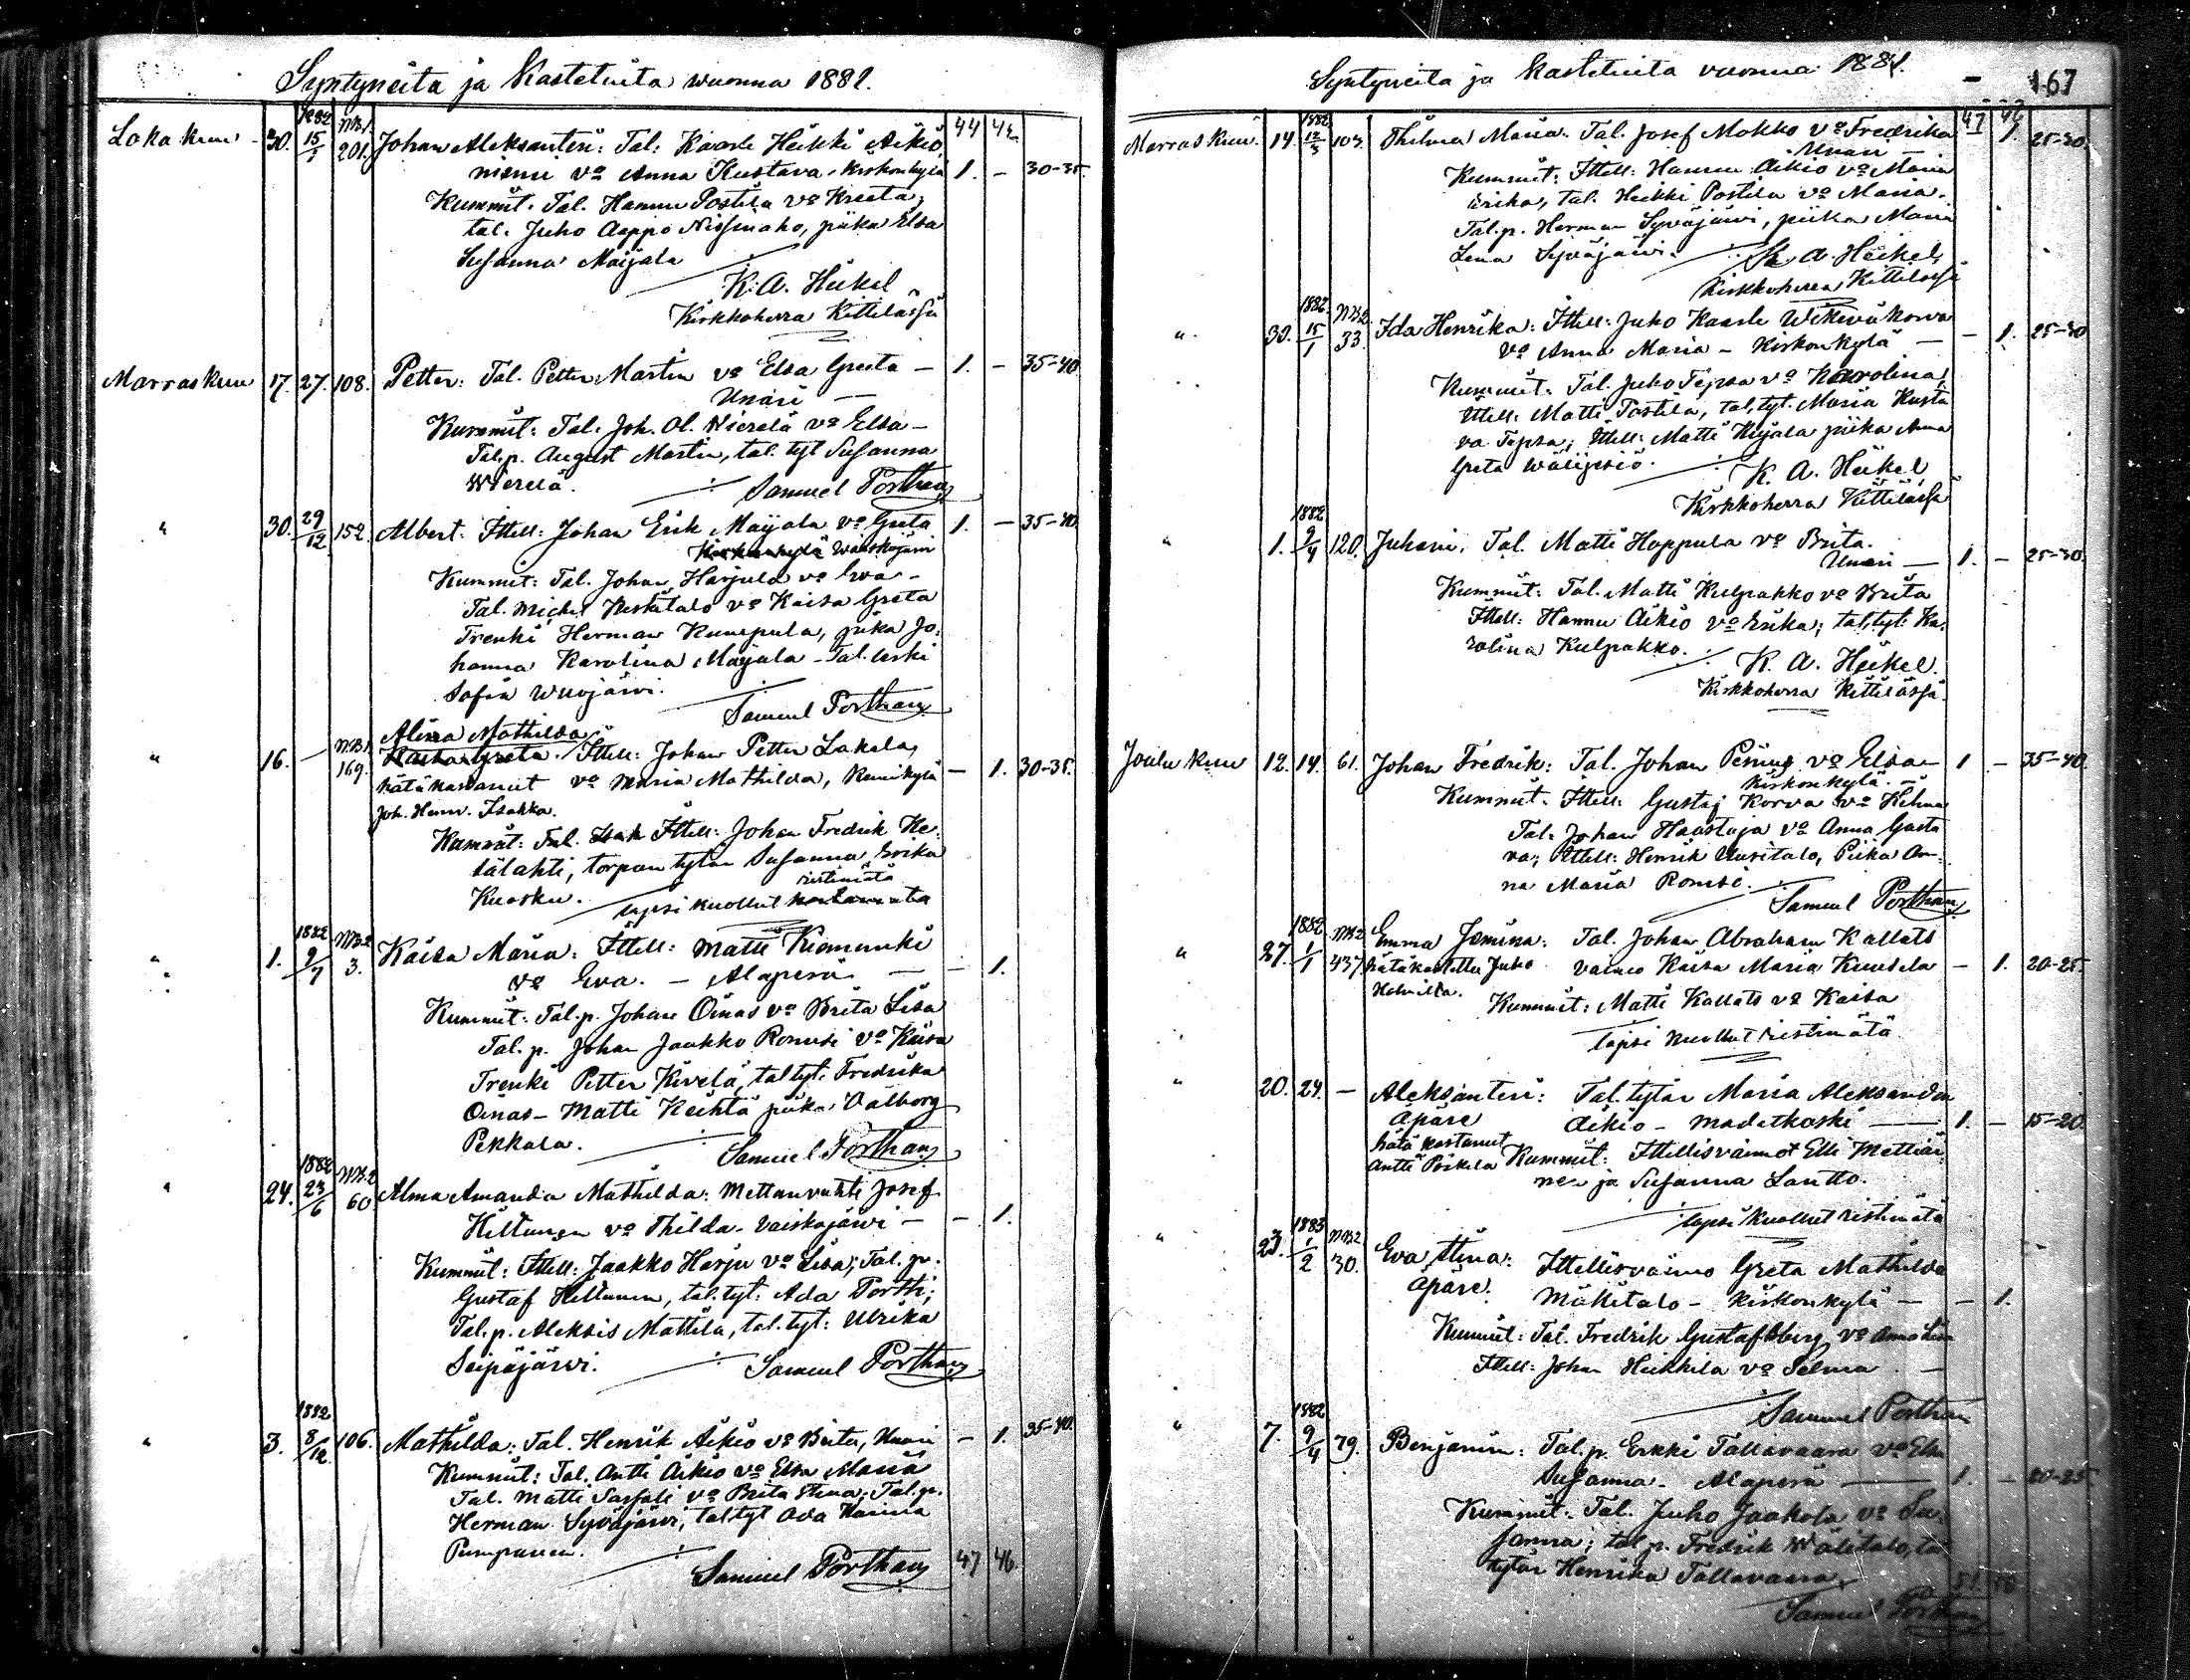 Syntyneitä ja Kastetuita wuonna 1881.
44 42
Lokakuu 30. 1882 15/1 NB.1 201. Johan Aleksanteri: Tal. Kaarle Heikki Aikio
niemi vo Anna Kustava, Kirkonkylä 1. - 30-35.
Kummit. Tal. Hannu Postila vo Kreeta;
tal. Juho Aappo Nissinaho, piika Elsa
Susanna Maijala
K. A. Heikel
Kirkkoherra Kittilässä
Marraskuu 17. 27. 108. Petter: Tal. Petter Martin vo Elsa Greeta - 1. - 35-40
Unari -
Kummit: Tal. Joh. Ol. Wierelä vo Elsa -
Tal.p. August Martin, tal. tyt Susanna
Wierelä.
Samuel Porthan
" 30. 29/12 152. Albert. Ittell: Johan Erik Maijala vo Greta 1. - 35-40.
Waiskojärvi
Kummit: Tal. Johan Harjula vo Ewa -
Tal. Michel Keskitalo vo Kaisa Greta
Trenki Herman Kunnpula, piika Jo-
hanna Karolina Maijala - Tal. leski
Sofia Wuojärwi.
Samuel Porthan
Alina Mathilda
" 16. - NB.1 169. Ittell: Johan Petter Lakela,
hätäkastanut vo Maria Mathilda, Kemikylä - 1. 30-35.
Joh. Henr. Isakka.
Kummit: Tal. Ittell: Johan Fredrik Ke-
sälahti, torpan tytär Susanna Erika
Kuosku.
ristimätä
lapsi kuollut
" 1. 1882 9/7 NB.2 3. Kaisa Maria: Ittell: Matti Kiamunki
vo Eva. - Alaperä - - 1.
Kummit. Tal.p. Johan Oinas vo Brita Lisa
Tal. p. Johan Jaakko Romsi vo Kaisa
Trenki Petter Kivelä, tal tyt. Fredrika
Oinas - Matti Keihtä piika Valborg
Pekkala.
Samuel Porthan
" 24. 1882 23/6 NB.2 60 Alma Amanda Mathilda: Mettänvahti Josef
Hiltunen vo Thilda. Vaiskojärwi - - 1.
Kummit: Ittell: Jaakko Harju vo Lisa; Tal. p.
Gustaf Hiltunen, tal. tyt: Ada Portti;
Tal. p. Aleksis Mattila, tal. tyt: Ulrika
Seipäjärwi.
Samuel Porthan
" 3. 1882 8/12 106. Mathilda: Tal. Henrik Aikio vo Brita, Unari - 1. 35-40.
Kummit: Tal. Antti Aikio vo Elsa Maria
Tal. Matti Sassali vo Brita Stina; Tal. p.
Herman Syväjärwi, tal tyt Ada Karina
Pumpanen.
Samuel Porthan 47 46.
Syntyneitä ja Kastetuita vuonna 1881. - 167
47 46
Marraskuu. 14. 1882 12/3 103. Thilma Maria. Tal. Josef Mokko vo Fredrika - 1. 25-30.
Unari -
Kummit: Ittell: Hannu Aikio vo Maria
Erika, tal. Heikki Postila vo Maria.
Tal.p. Herman Syväjärwi, piika Maria
Lena Syväjärwi.
K. A. Heikel,
Kirkkoherra Kittilässä
" 30. 1882 15/1 NB.2 33. Ida Henrika: Ittell: Juho Kaarle Wikeväkorva
vo Anna Maria - Kirkonkylä - - 1. 25-30
Kummit: Tal. Juho Tepsa vo Karolina,
Ittell. Matti Postila, tal, tyt. Maria Kusta
va Tepsa; Ittell: Matti Kujala piika Anna
Greta Wälijesiö.
K. A. Heikel,
Kirkkoherra Kittilässä
" 1. 1882 9/4 120. Juhani. Tal. Matti Hoppula vo Brita.
Unari - 1. - 25-30.
Kummit: Tal. Matti Kulpakko vo Brita
Ittell: Hannu Aikio vo Erika; tal. tyt. Ka-
rolina Kulpakko.
K. A. Heikel.
Kirkkoherra Kittilässä
Joulukuu 12. 14. 61. Johan Fredrik: Tal. Johan vo Elsa - 1 - 35-40.
Kirkonkylä.
Kummit. Ittell: Gustaf Korva vo
Tal. Johan Haastaja vo Anna Gusta
va; Ittell: Henrik Uusitalo, Piika An-
na Maria Romsi.
Samuel Porthan
" 27. 1882 1/1 NB.2 437. Emma Jemina. Tal. Johan Abraham Kallats
hätäkastettu Juho vaimo Kaisa Maria Kuusela - 1. 20-25.
Kummit: Matti Kallats vo Kaisa
lapsi kuollut ristimätä
" 20. 24. - Aleksanteri: Tal. tytär Maria Aleksandra
äpäre Aikio - Madetkoski - 1. - 15-20.
hätäkastanut
Antti Poikela Kummit: Ittellisvaimot Elli Mattiai-
nen ja Susanna Lantto.
lapsi kuollut ristimätä
" 23. 1883 1/2 NB2 30. Eva Stina: Ittellisvaimo Greta Mathilda
äpäre. Mäkitalo - Kirkonkylä - - 1.
Kummit: Tal. Fredrik Gustafsberg vo Anna Lisa
Ittell: Johan Heikkila vo Selma -
Samuel Porthan
" 7. 1882 9/4 79. Benjamin: Tal. p. Erkki Tallavaara vo Elsa
Susanna - Alaperä - 1. - 20-25
Kummit: Tal. Juho Jaakola vo Su-
sanna; tal p. Fredrik Wälitalo, tal
tytär Henrika Tallavaara
51. 50
Samuel Porthan